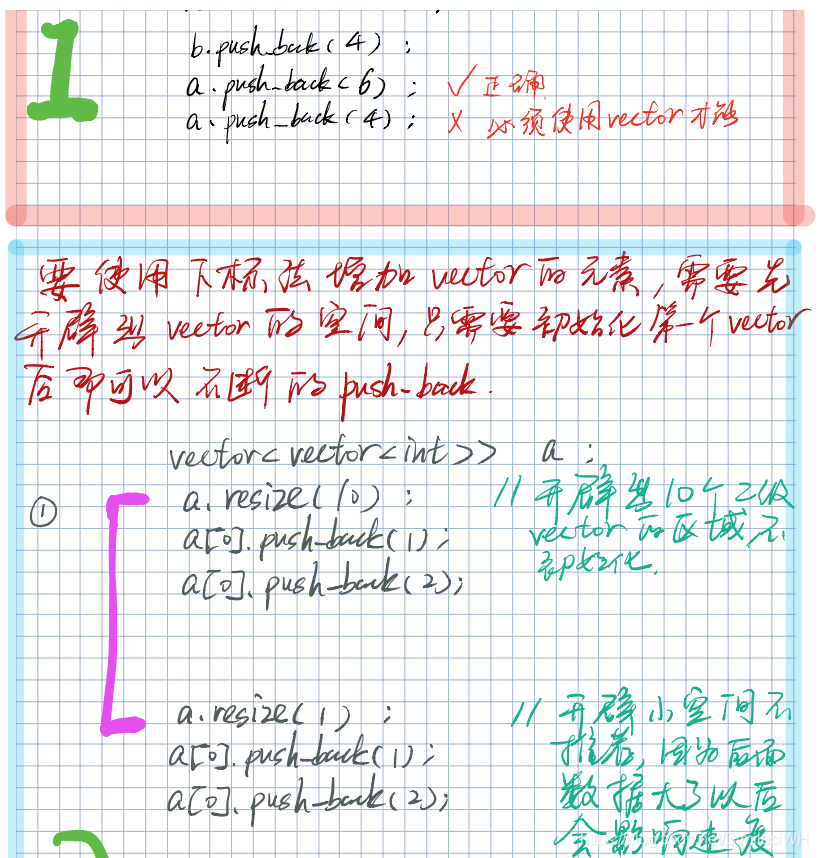 1
b.push_back(4);
a.push_back(6); ✓ 正确
a.push_back(4); X 必须使用vector才能
要使用下标法增加vector的元素,需要先
开辟出vector的空间,只需要初始化第一个vector
后即可以不断的push-back.
vector<vector<int>> a;
① a.resize(10); //开辟出10个二级
a[0].push-back(1); vector的区域,不
a[0].push-back(2); 初始化.
a.resize(1); //开辟小空间不
a[0].push-back(1); 推荐,因为后面
a[0].push-back(2); 数据大了以后
会影响速度